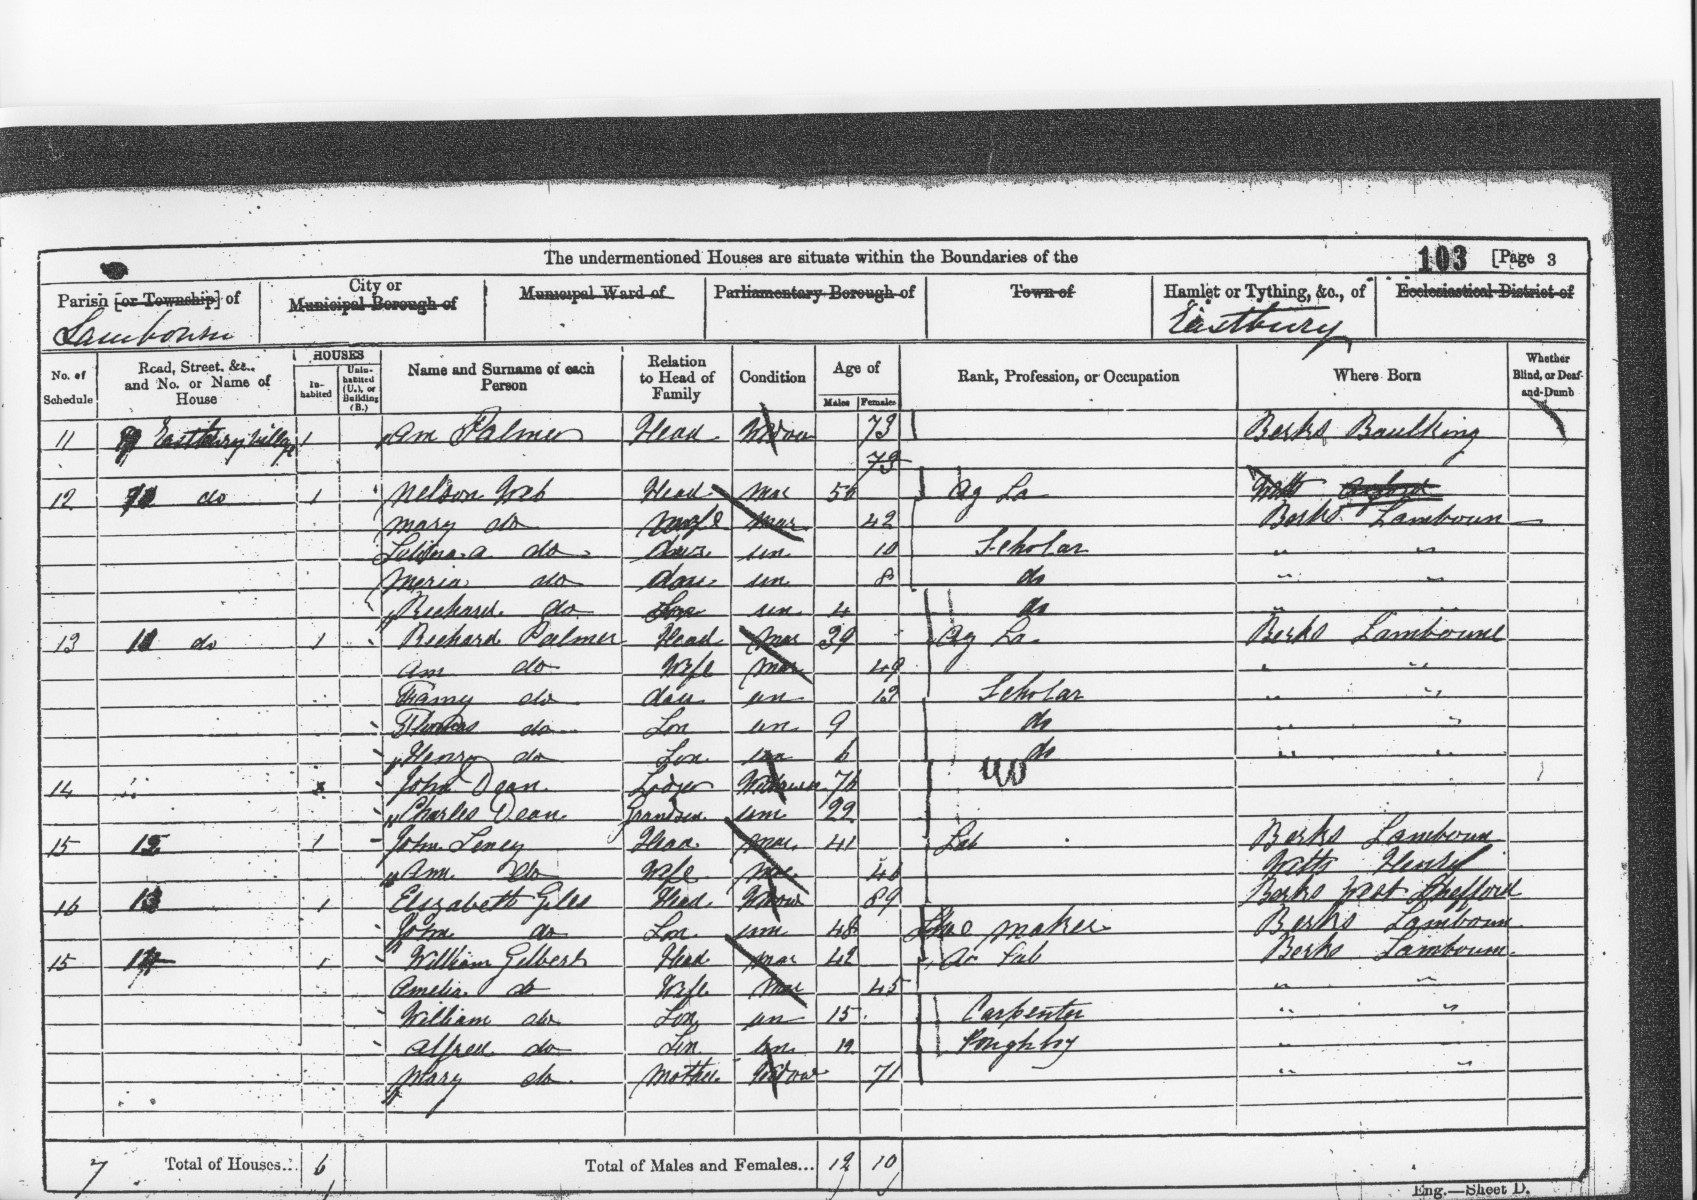 The undermentioned Houses are situate within the Boundaries of the 103 [Page 3
Parish [or Township] of City or Municipal Borough of Municipal Ward of Parliamentary Borough of Town of Hamlet or Tything, &c., of Ecclesiastical District of
Lambourn Eastbury
No. of Schedule Road, Street, &c., and No. or Name of House HOUSES Inhabited Uninhabited (U.), or Building (B.) Name and Surname of each Person Relation to Head of Family Condition Age of Males Females Rank, Profession, or Occupation Where Born Whether Blind, or Deaf-and-Dumb
11 Eastbury Village 1 Ann Palmer Head Widow 73 Berks Baulking
73
12 do 1 Nelson Web Head mar 56 Ag La Wilts
mary do wife mar 42 Berks Lambourn
do daur un 10 Scholar " "
Meria do daur un 8 do " "
Richard do Son un 4 do " "
13 11 do 1 Richard Palmer Head mar 39 Ag La Berks Lambourne
Ann do Wife mar 49 " "
Fanny do dau un 12 Scholar " "
Thomas do Son un 9 do " "
Henry do Son un 6 do " "
14 " John Dean Lodger Widower 76
Charles Dean Grandson unm 22
15 12 1 John Head mar 41 Lab Berks Lambourn
Ann do Wife mar 46 Wilts
16 13 1 Elizabeth Giles Head Widow 89 Berks East Shefford
John do Son unm 48 Shoe maker Berks Lambourn
15 14 1 William Gilbert Head mar 42 Ag Lab Berks Lambourn
Amelia do Wife mar 45 " "
William do Son un 15 Carpenter " "
Alfred do Son un 12 Ploughby "
Mary do Mother Widow 71 " "
7 Total of Houses... 6 Total of Males and Females... 12 10
Eng.—Sheet D.